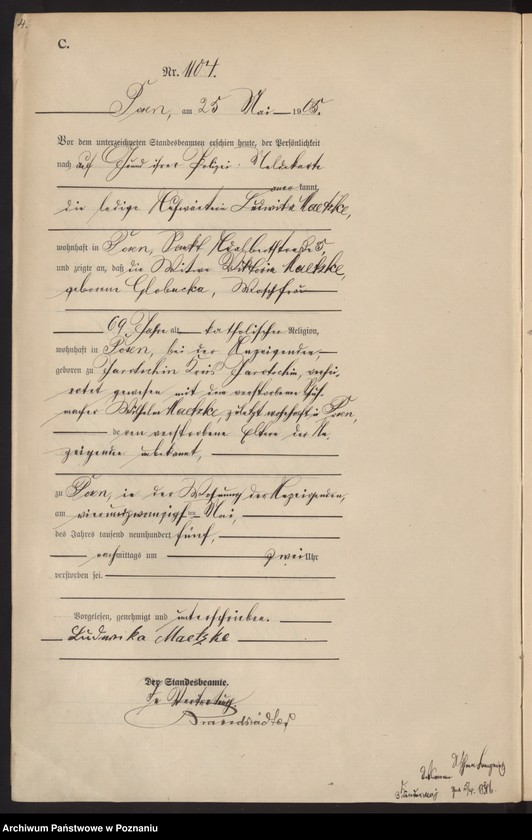 4.
C.
Nr. 1104.
Posen, am 25 Mai 1905.
Vor dem unterzeichneten Standesbeamten erschien heute, der Persönlichkeit
nach auf Grund ihrer Polizei-Meldekarte
anerkannt,
die ledige Aufwärterin Ludwika Maetzke,
wohnhaft in Posen, Sankt Adalbertstraße 5,
und zeigte an, daß die Witwe Viktoria Maetzke,
geborene Globucka, Waschfrau
69 Jahre alt, katholischer Religion,
wohnhaft in Posen, bei der Anzeigenden,
geboren zu Jarotschin Kreis Jarotschin, verhei-
ratet gewesen mit dem verstorbenen Schuh-
macher Wilhelm Maetzke, zuletzt wohnhaft in Posen,
deren verstorbene Eltern der An-
zeigenden unbekannt,
zu Posen, in der Wohnung der Anzeigenden,
am vierundzwanzigsten Mai,
des Jahres tausend neunhundert fünf,
nachmittags um zwei Uhr
verstorben sei.
Vorgelesen, genehmigt und unterschrieben.
Ludwika Maetzke
Der Standesbeamte.
In Vertretung
Archiwum Państwowe w Poznaniu